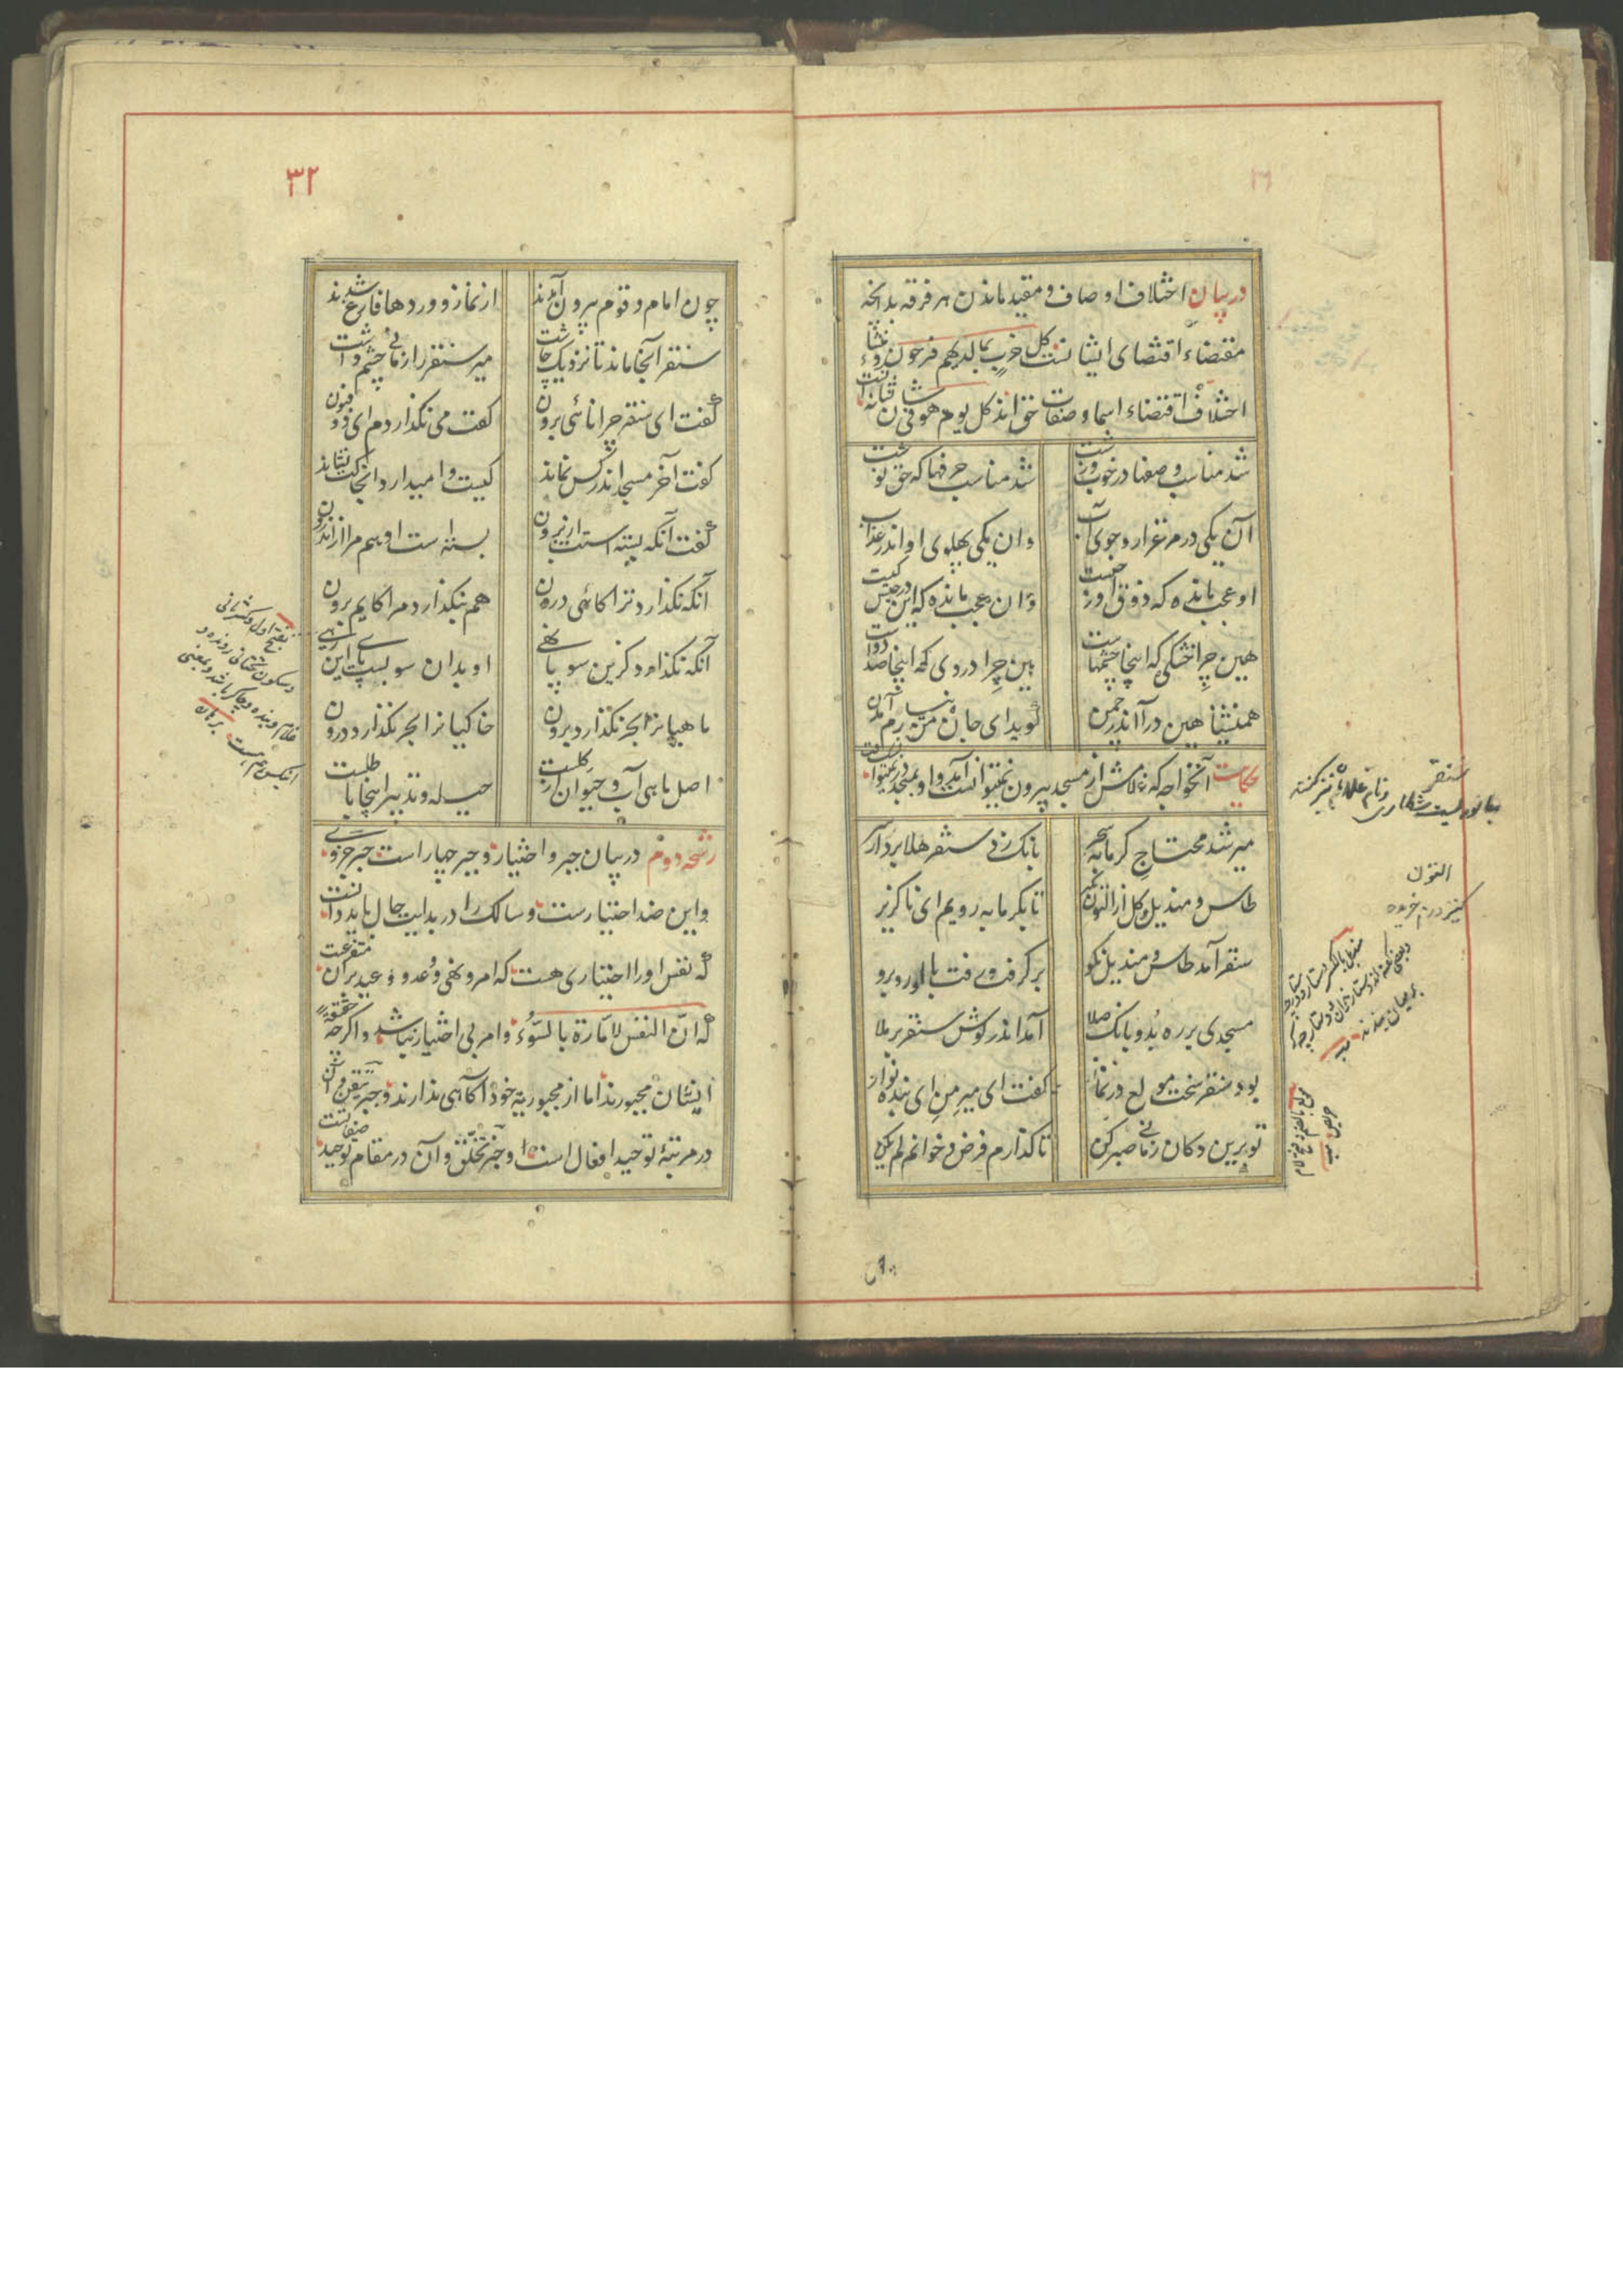 در بیان اختلاف اوصاف و مقید ماندن هر فرقه بدانچه
مقتضاء اقتضای ایشانست کل حزب بما لدیهم فرحون و منشاء
اختلاف اقتضاء اسما و صفات حق‌اند کل یوم هو فی شان شانه انست
شد مناسب وصفها در خوب و زشت شد مناسب حرفها که حق نوشت
آن یکی در مرغزار و جوی آب وان یکی پهلوی او اندر عذاب
او عجب مانده که ذوق او ز چیست وان عجب مانده که این در حبس کیست
هین چرا خشکی که اینجا چشمهاست هین چرا زردی که اینجا صد دواست
همنشینا هین درآ اندر چمن گوید ای جان من نیارم آمدن
حکایت آنخواجه که غلامش از مسجد بیرون نمیتوانست آمد و او بمسجد در نمیتوانست
میر شد محتاج گرمابه سحر بانک زد سنقر هلا بردار سر
طاس و مندیل و کل از التون بگیر تا بگرمابه رویم ای ناگزیر
سنقر آمد طاس و مندیل نکو برگرفت و رفت با او رو برو
مسجدی بر ره بد و بانک صلا آمد اندر گوش سنقر بر ملا
بود سنقر سخت مولع در نماز گفت ای میر من ای بنده نواز
تو برین دکان زمانی صبر کن تا گذارم فرض و خوانم لم یکن
سنقر
جانوریست شکاری و نام غلامان نیز گفته
التون
کنیز درم خریده
۳۲
چون امام و قوم بیرون آمدند از نماز و وردها فارغ شدند
سنقر آنجا ماند تا نزدیک چاشت میر سنقر را زمانی چشم داشت
گفت ای سنقر چرا نائی برون گفت می نگذاردم ای ذو فنون
گفت آخر مسجد اندر کس نماند کیست وا میدارد آنجا کت نشاند
گفت آنکه بسته استت از برون بسته است او هم مرا از اندرون
آنکه نگذارد ترا کائی درون هم بنگذارد مرا کایم برون
آنکه نگذارد کزین سو پا نهی او بدان سو بست پای این رهی
ماهیانرا بحر نگذارد برون خاکیانرا بحر نگذارد درون
اصل ماهی آب و حیوان از گلست حیله و تدبیر اینجا باطلست
رشحه دوم در بیان جبر و اختیار و جبر چهار است جبر جزوی
و این ضد اختیارست و سالک را در بدایت حال باید دانست
که نفس او را اختیاری هست که امر و نهی و وعد و وعید بر آن متفرعست
که ان النفس لامارة بالسوء و امر بی اختیار نباشد و اگرچه حقیقة
ایشان مجبورند اما از مجبوریة خود آگاهی ندارند و جبر تیقن و آن
در مرتبهٔ توحید افعال است و جبر تخلق و آن در مقام توحید صفاتست